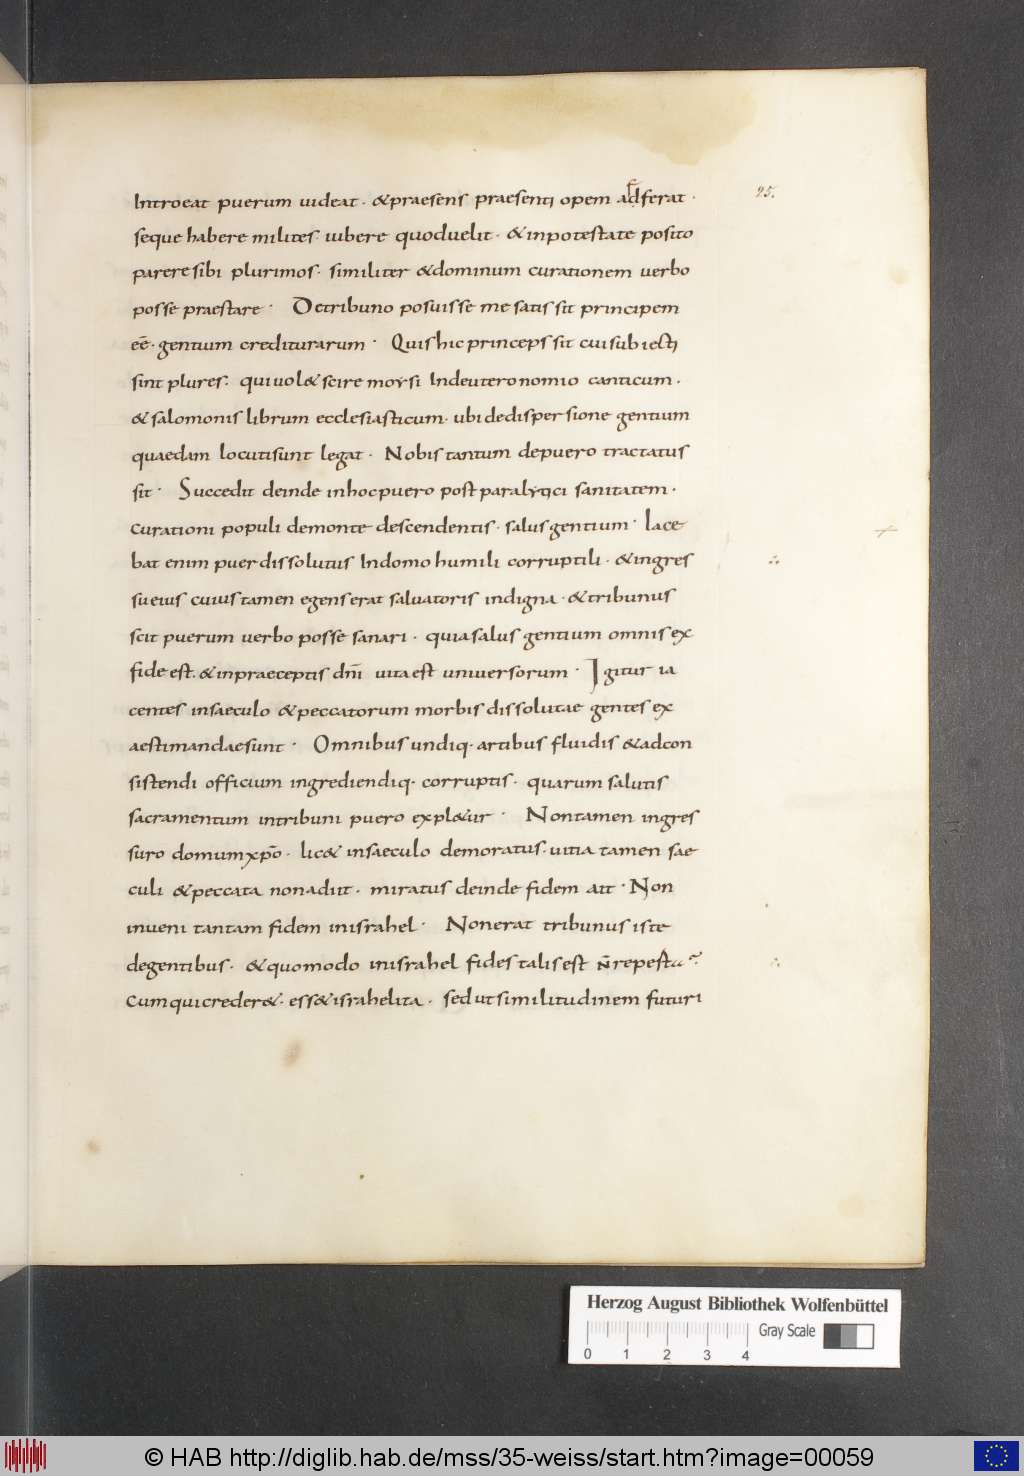 Introeat puerum uideat · &praesens praesenti opem adferat ·
25.
seque habere milites · iubere quoduelit · &inpotestate posito
parere sibi plurimos · similiter &dominum curationem uerbo
posse praestare · Detribuno posuisse me satis sit principem
eē · gentium crediturarum · Quis hic princeps sit cui subiecti
sint plures : qui uol& scire moysi Indeuteronomio canticum ·
&salomonis librum ecclesiasticum · ubi dedispersione gentium
quaedam locuti sunt legat · Nobis tantum depuero tractatus
sit · Succedit deinde inhoc puero post paralytici sanitatem ·
curationi populi demonte descendentis · salus gentium · Iace
bat enim puer dissolutus Indomo humili corruptili · &ingres
su eius cuius tamen egens erat saluatoris indigna · &tribunus
scit puerum uerbo posse sanari · quia salus gentium omnis ex
fide est · &inpraeceptis dn̄i uita est uniuersorum · Igitur ia
centes insaeculo &peccatorum morbis dissolutae gentes ex
aestimandae sunt · Omnibus undiq· artibus fluidis &adcon
sistendi officium ingrediendiq· corruptis · quarum salutis
sacramentum intribuni puero expl&ur · Non tamen ingres
suro domum xp̄o · lic& insaeculo demoratus · uitia tamen sae
culi &peccata non adiit · miratus deinde fidem ait · Non
inueni tantam fidem inisrahel · Non erat tribunus iste
degentibus · &quomodo inisrahel fides talis est n̄ reperta?
Cum qui creder& · ess& israhelita · sed ut similitudinem futuri
Herzog August Bibliothek Wolfenbüttel
Gray Scale
0 1 2 3 4
© HAB http://diglib.hab.de/mss/35-weiss/start.htm?image=00059